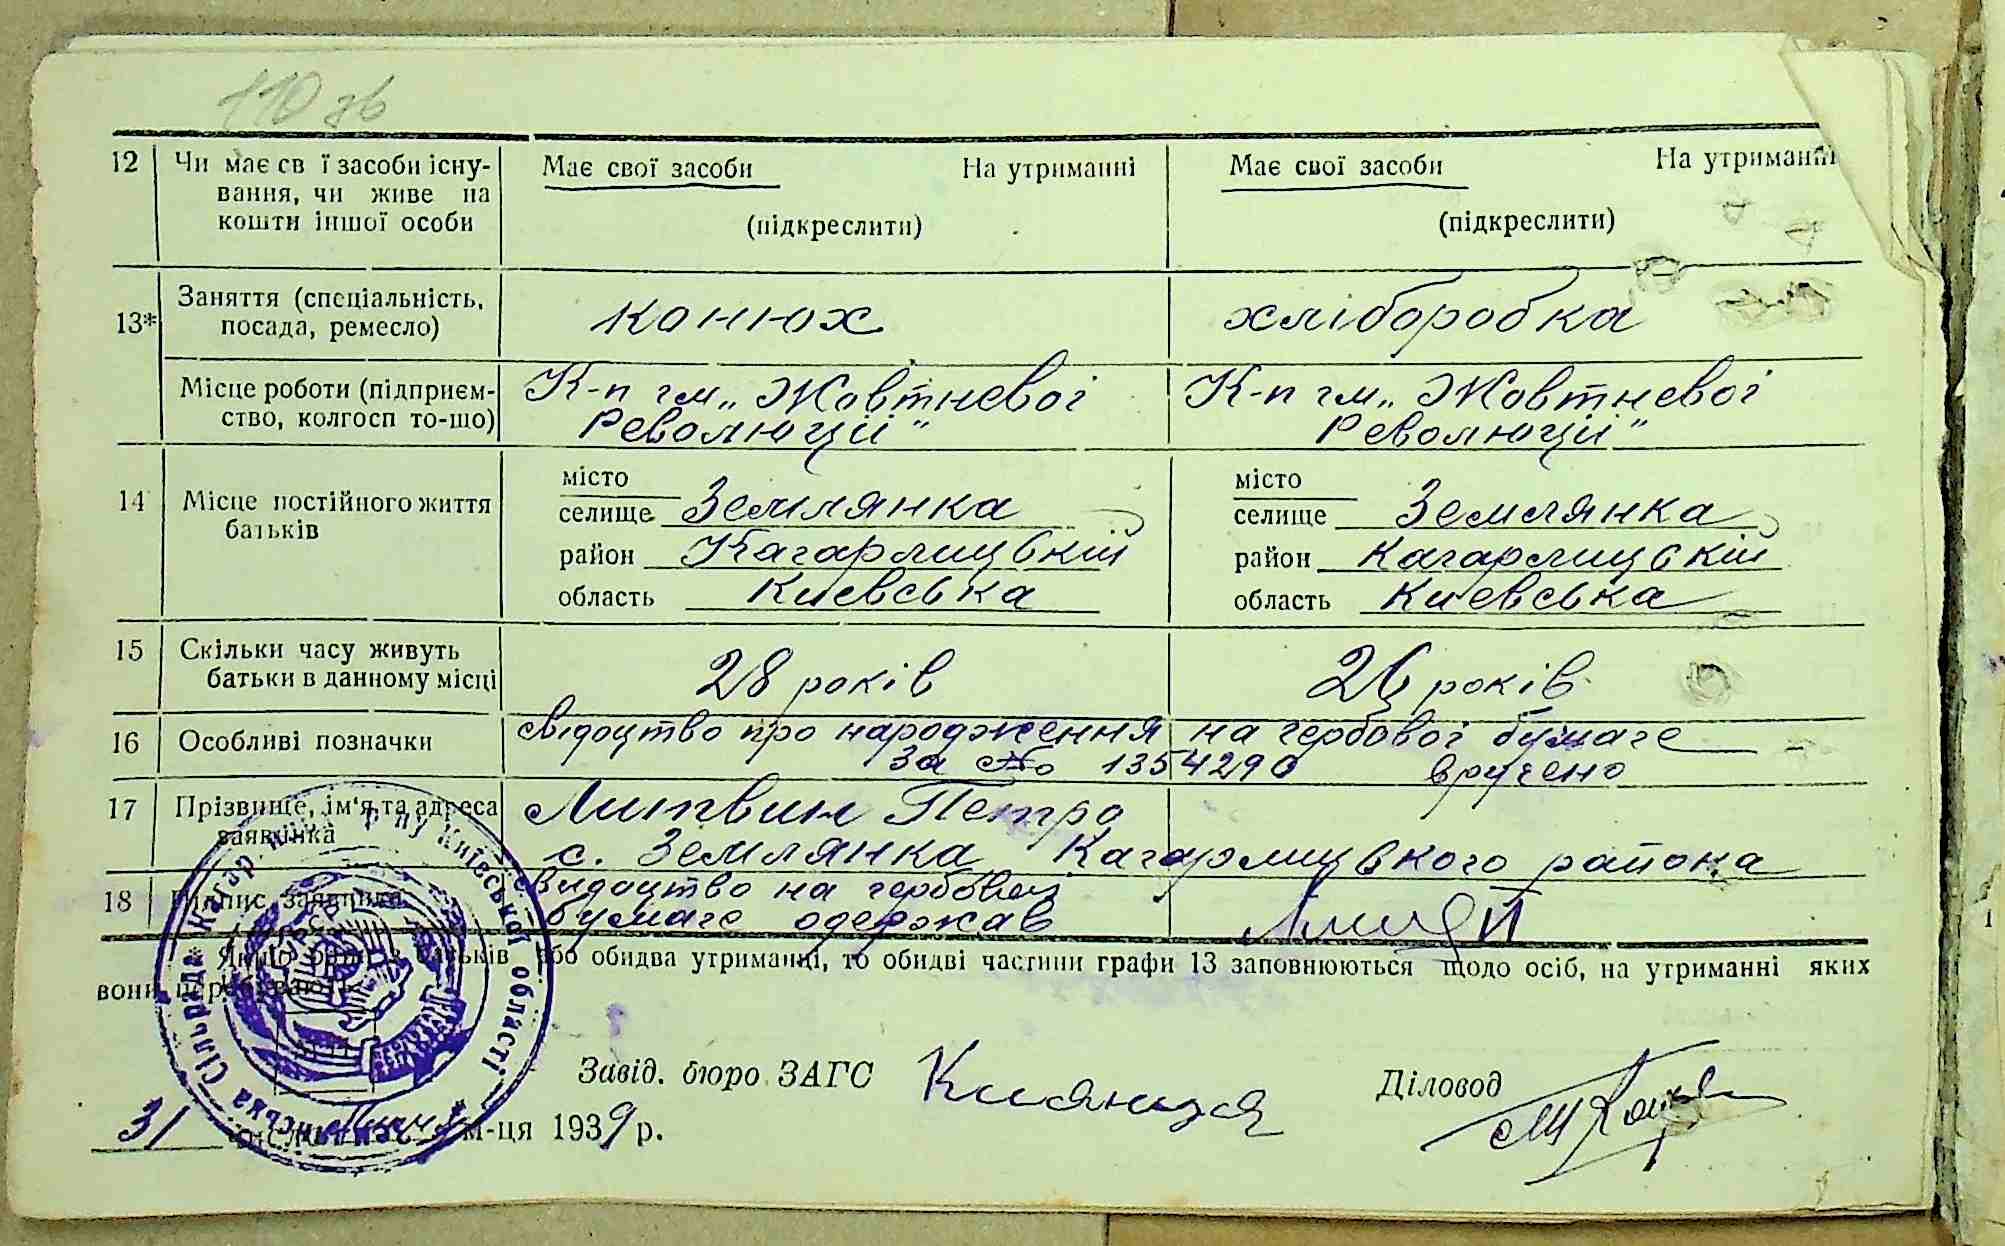 110 зв
12 Чи має св ї засоби існу- Має свої засоби На утриманні Має свої засоби На утриманні
вання, чи живе на
кошти іншої особи (підкреслити) (підкреслити)
13* Заняття (спеціальність, посада, ремесло) конюх хліборобка
Місце роботи (підприєм- К-п ім„ Жовтневої К-п ім„ Жовтневої
ство, колгосп то-що) Революції" Революції"
14 Місце постійного життя батьків
місто місто
селище Землянка селище Землянка
район Кагарлицькій район Кагарлицькій
область Киевська область Киевська
15 Скільки часу живуть
батьки в данному місці 28 років 26 років
16 Особливі позначки свідоцтво про народження на гербової бумаге
за № 1354290 вручено
17 Прізвище, ім'я та адреса Литвин Петро
заявника с. Землянка Кагарлицького района
18 Підпис заявника свидоцтво на гербовой
бумаге одержав
* Якщо один з батьків або обидва утриманці, то обидві частини графи 13 заповнюються щодо осіб, на утриманні яких
вони перебувають.
Завід. бюро ЗАГС Діловод
31 м-ця 1939 р.
Сільрада Кагарлицького р-ну Київської області